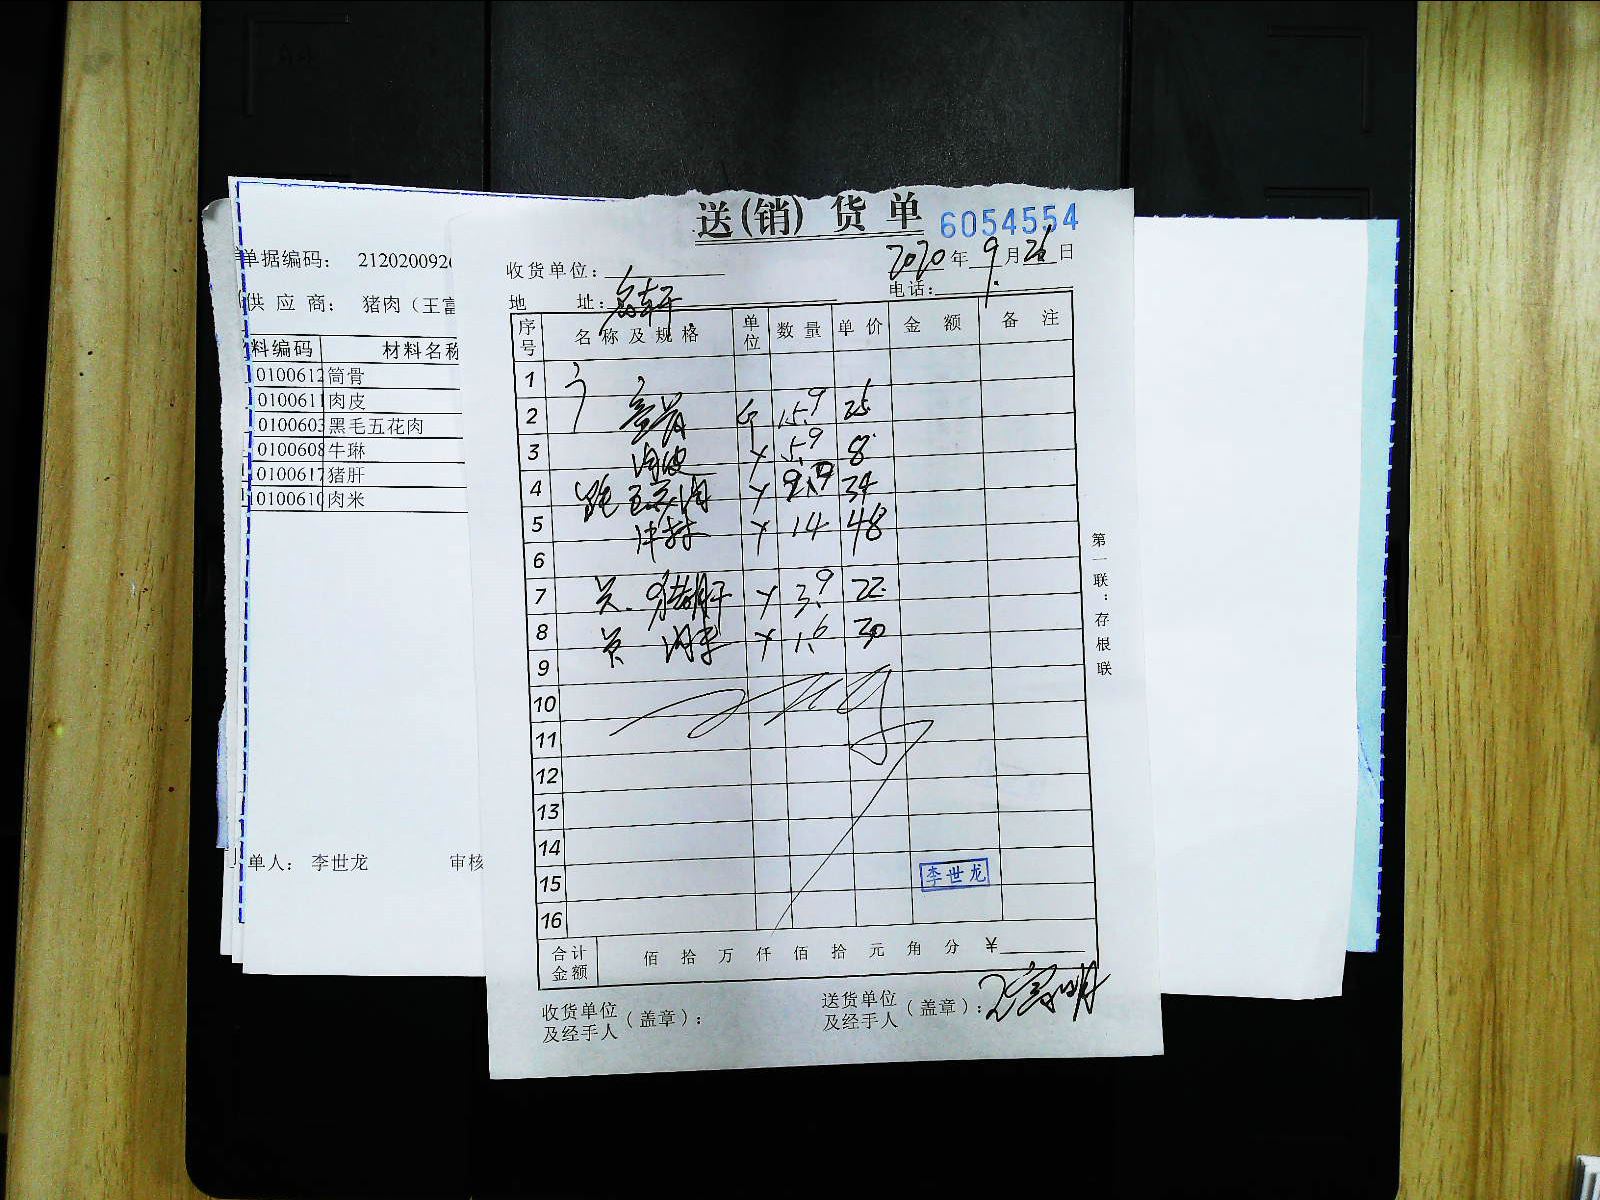 送(销)货单 6054554
收货单位: 2020年9月26日
地 址: 名轩 电话:
序号 名称及规格 单位 数量 单价 金额 备注
1
2 筒骨 斤 15.9 25
3 肉皮 5.9 8
4 五花肉 34
5 牛琳 14 48
6
7 猪肝 3.9 22
8 肉米 1.6 30
9
10
11
12
13
14
15 李世龙
16
合计金额 佰 拾 万 仟 佰 拾 元 角 分 ¥
收货单位及经手人(盖章): 送货单位及经手人(盖章): 王富明
第一联:存根联
单据编码: 2120200926
供应商: 猪肉(王富
料编码 材料名称
0100612 筒骨
010061 肉皮
0100603 黑毛五花肉
0100608 牛琳
0100617 猪肝
0100610 肉米
单人: 李世龙 审核